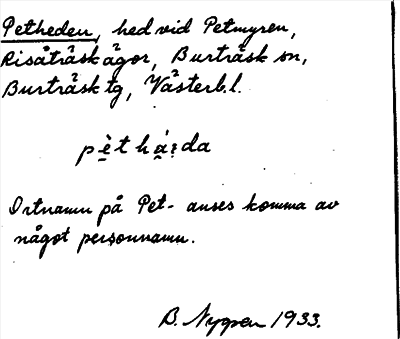 Petheden, hed vid Petmyren,
Risåträsk ägor, Burträsk sn,
Burträsk tg, Västerb.l.
pèthá:da
Ortnamn på Pet- anses komma av
något personnamn.
B. Nygren 1933.